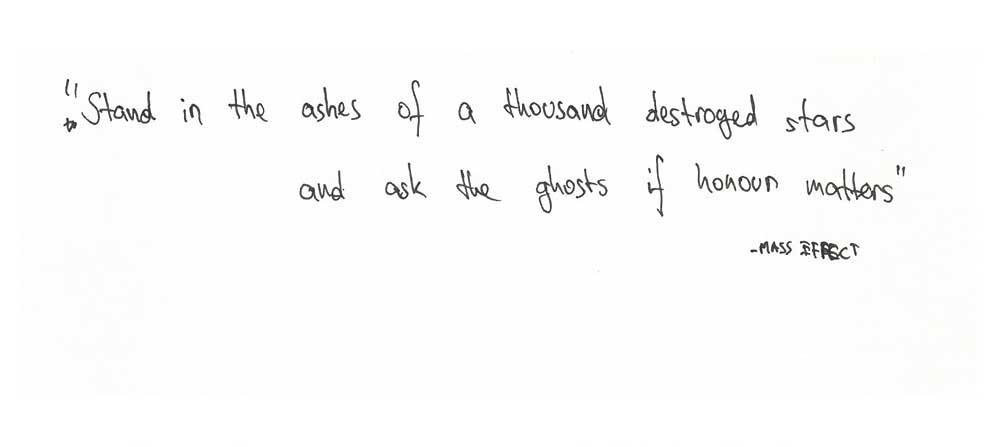 "Stand in the ashes of a thousand destroyed stars
and ask the ghosts if honour matters"
-MASS EFFECT